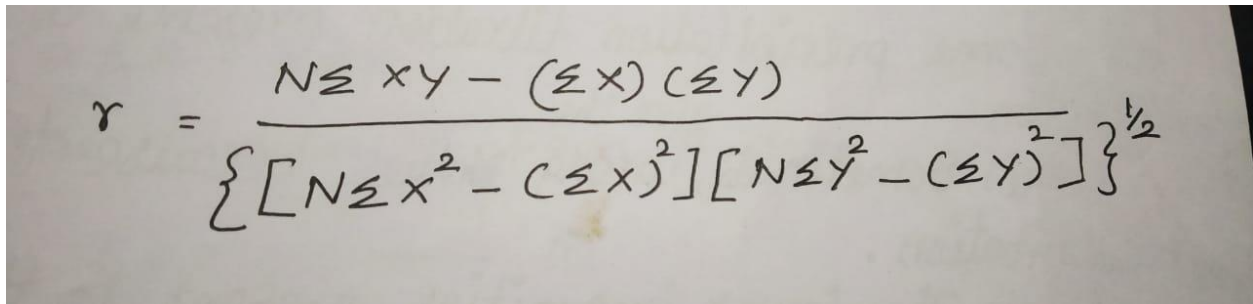 r = NΣ XY - (ΣX) (ΣY)
{[NΣX² - (ΣX)²][NΣY² - (ΣY)²]}^½